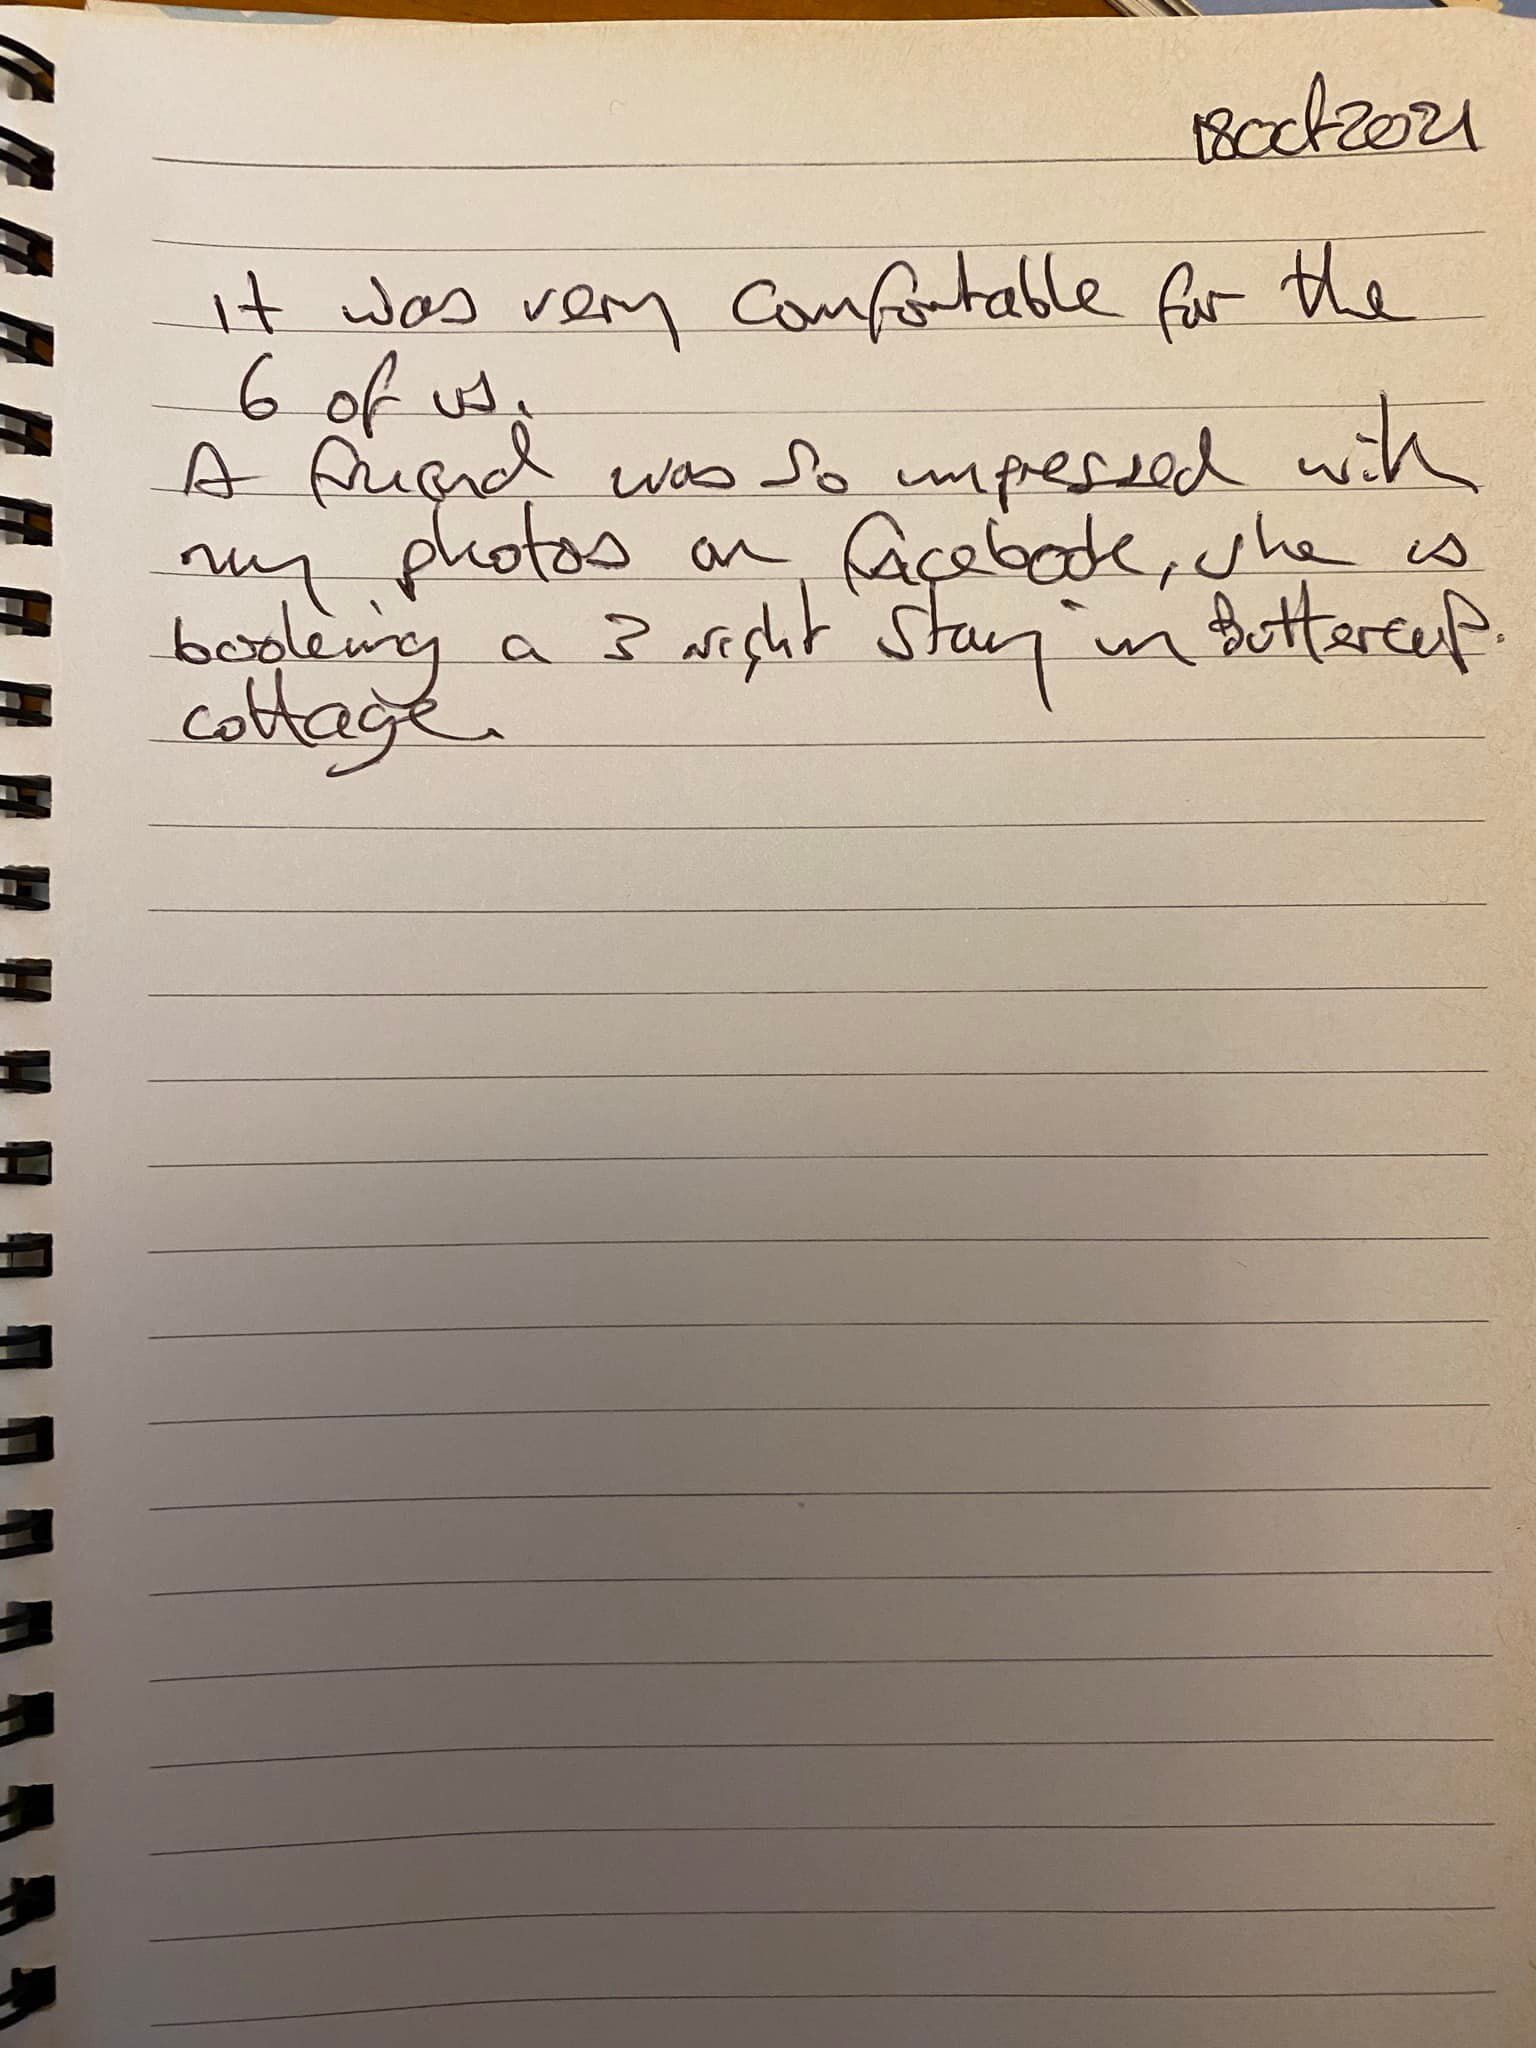 18 Oct 2021
it was very comfortable for the
6 of us.
A friend was so impressed with
my photos on facebook, she is
booking a 3 night stay in Buttercup.
cottage.